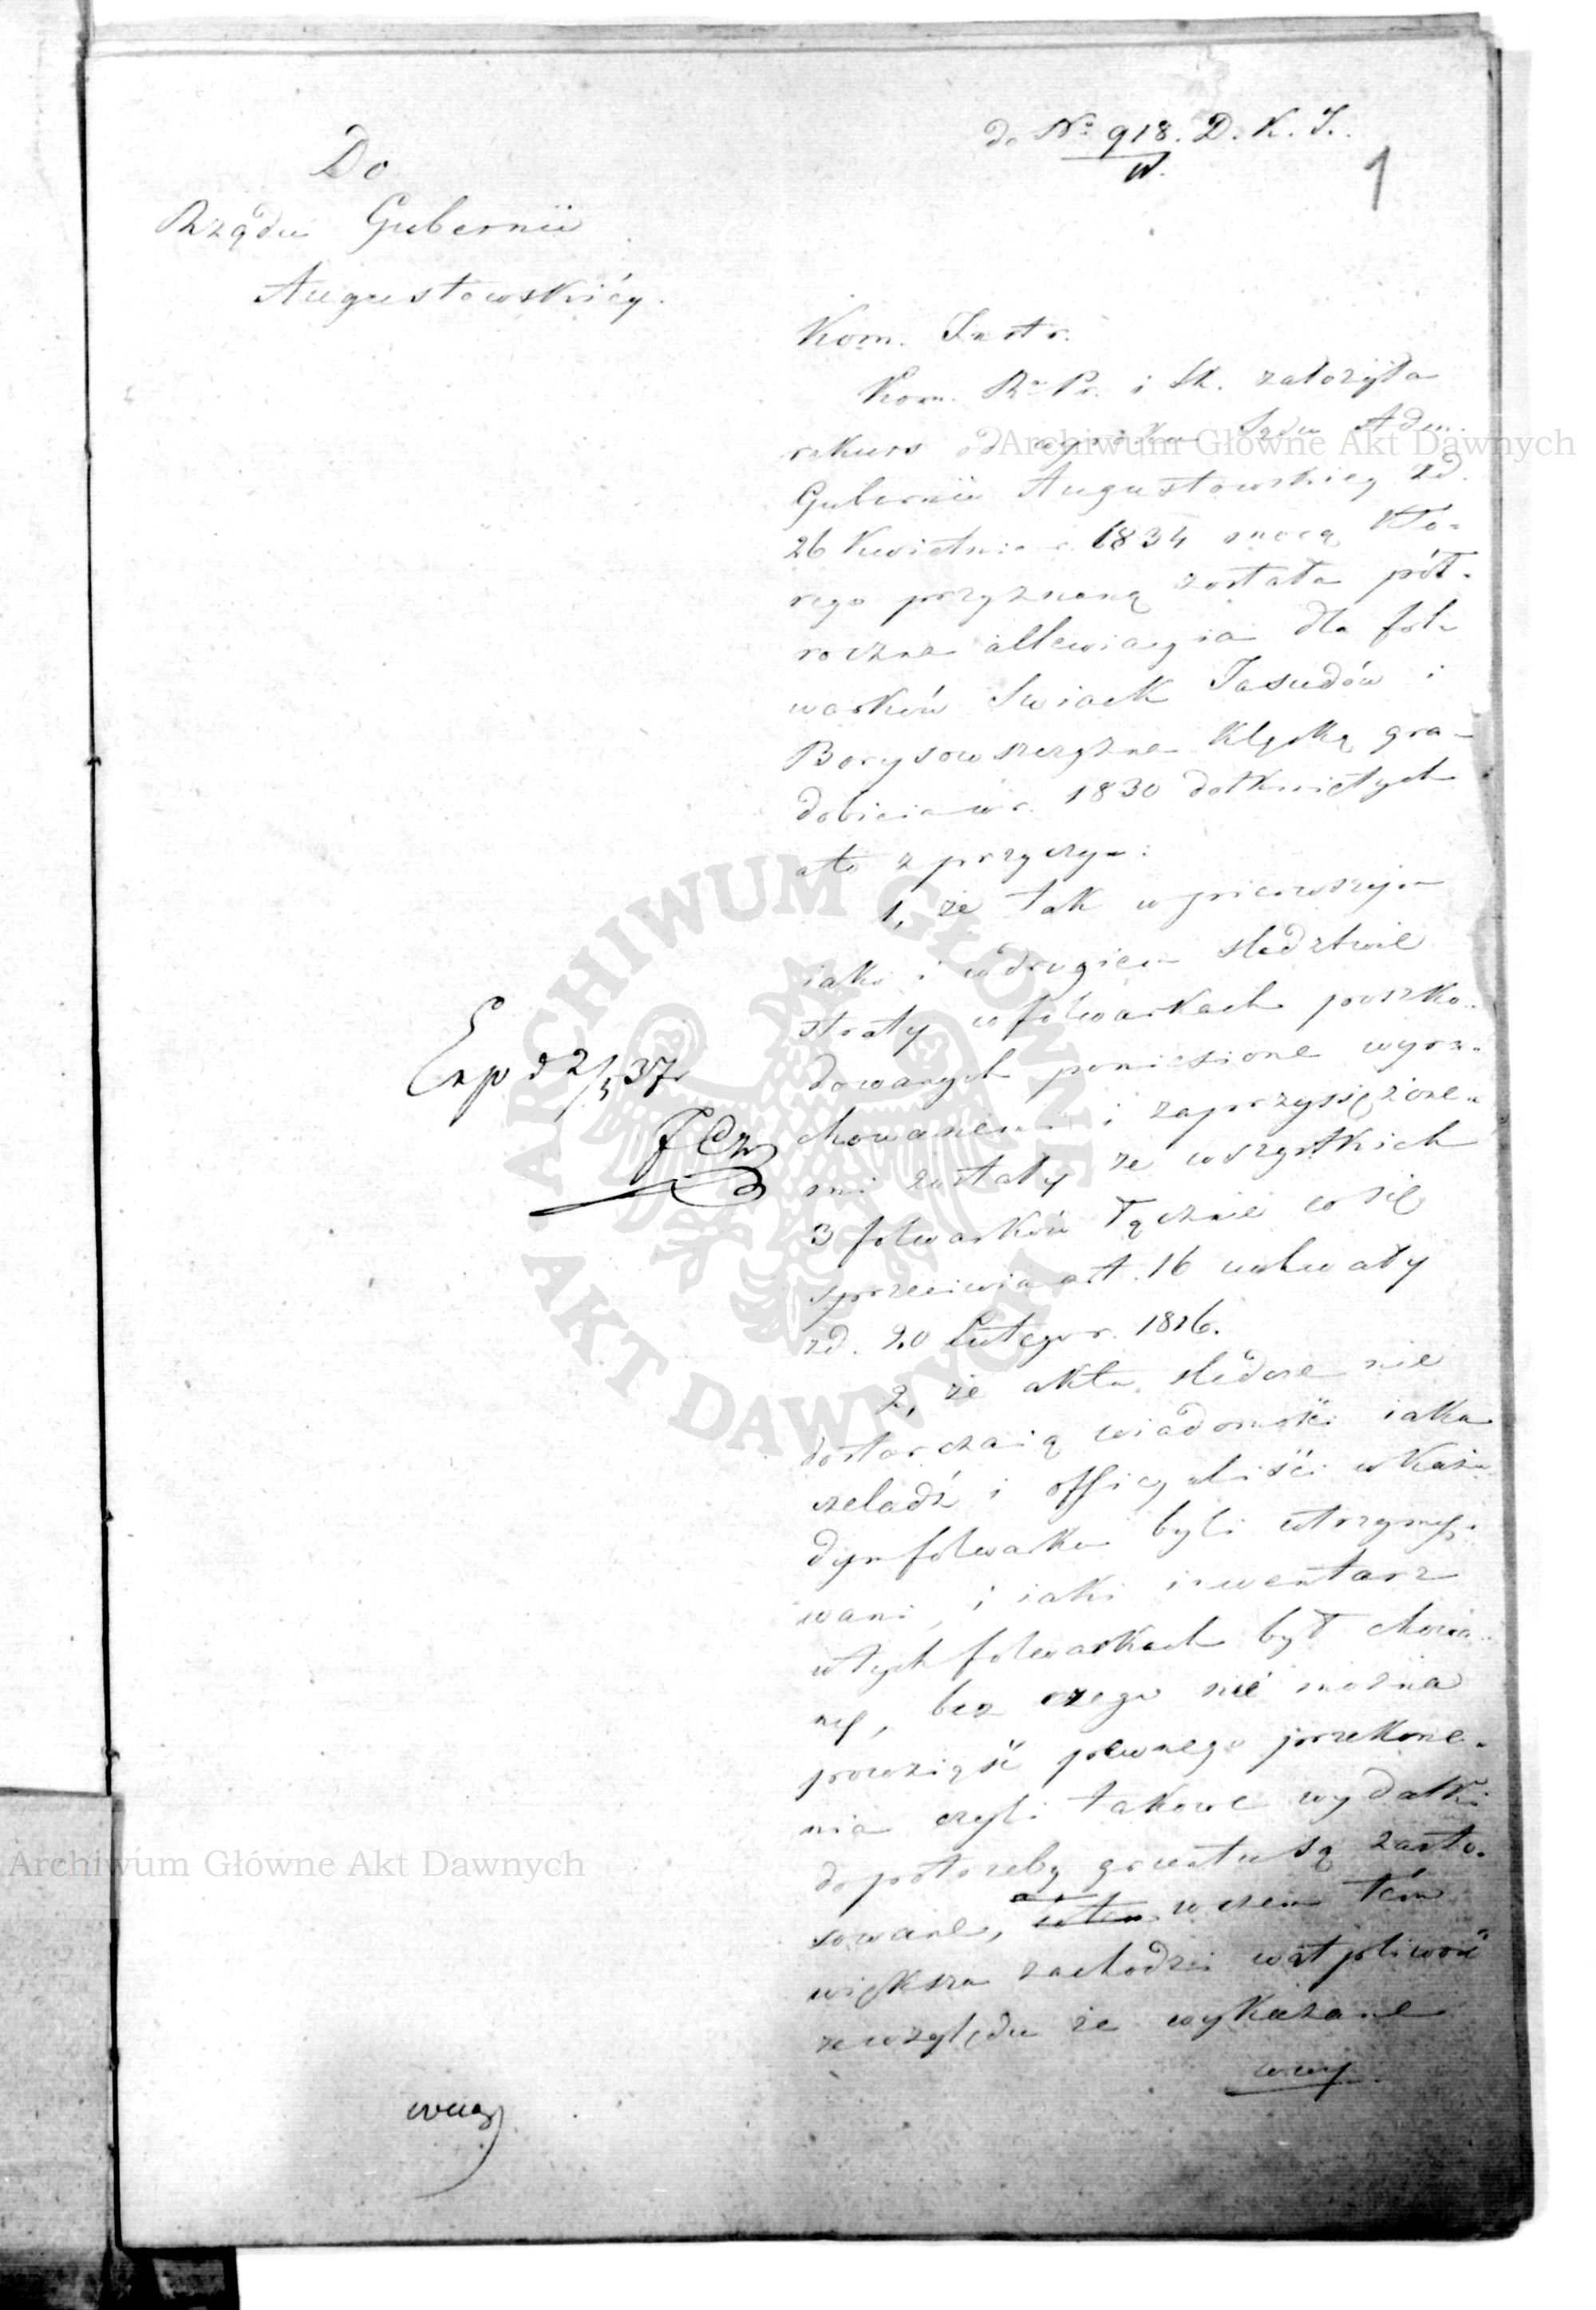 do Nº 918. D. K. I.
W.
1
Do
Rządu Gubernii
Augustowskiéy.
Kom. Instr.
Kom. R. Pr. i Sk. założyła
rekurs od wyroku Sądu Adm.
Gubernii Augustowskiey zd.
26 Kwietnia r. 1834 mocą któ-
rego przyznaną została pół-
roczna allewiacyia dla fol-
warków Swiack Jasudów i
Borysowszczyzna klęską gra-
dobicia w r. 1830 dotkniętych
a to z przyczyn:
1, że tak w pierwszym
iako i w drugiem sledztwie
straty w folwarkach poszko-
dowanych poniesione wyra-
chowanemi i zaprzysiężone-
mi zostały ze wszystkich
3 folwarków łącznie co się
sprzeciwia art. 16 uchwały
zd. 20 Lutego r. 1816.
2, że akta sledcze nie
dostarczaią wiadomości iaka
czeladź i officyaliści w każ-
dym folwarku byli utrzymy-
wani, i iaki inwentarz
w tych folwarkach był chowa-
ny, bez czego nie można
powziąść pewnego przekona-
nia czyli takowe wydatki
do potrzeby gruntu są zasto-
sowane, w czem tém
większa zachodzi wątpliwość
ze względu że wykazane
Exp d 2/5 37r
Archiwum Główne Akt Dawnych
Archiwum Główne Akt Dawnych
ARCHIWUM GŁÓWNE AKT DAWNYCH